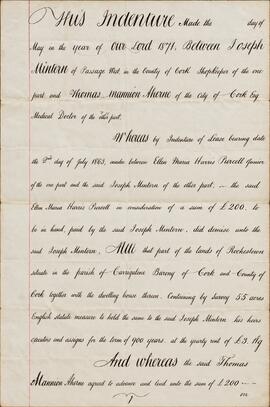 This Indenture Made the day of
May in the year of Our Lord 1871. Between Joseph
Mintern of Passage West in the County of Cork Shopkeeper of the one
part and Thomas Mannion Aherne of the City of Cork Esq
Medical Doctor of the other part.
Whereas by Indenture of Lease bearing date
the 2nd day of July 1863, made between Ellen Maria Harris Purcell Junior
of the one part and the said Joseph Mintern of the other part, the said
Ellen Maria Harris Purcell in consideration of a sum of £200, to
be in hand, paid by the said Joseph Mintern, did demise unto the
said Joseph Mintern, All that part of the lands of Rochestown
situate in the parish of Carrigaline Barony of Cork and County of
Cork together with the dwelling house thereon, Containing by Survey 55 acres
English statute measure to hold the same to the said Joseph Mintern his heirs
executors and assigns for the term of 900 years, at the yearly rent of £3.
And whereas the said Thomas
Mannion Aherne agreed to advance and lend unto the sum of £200
1